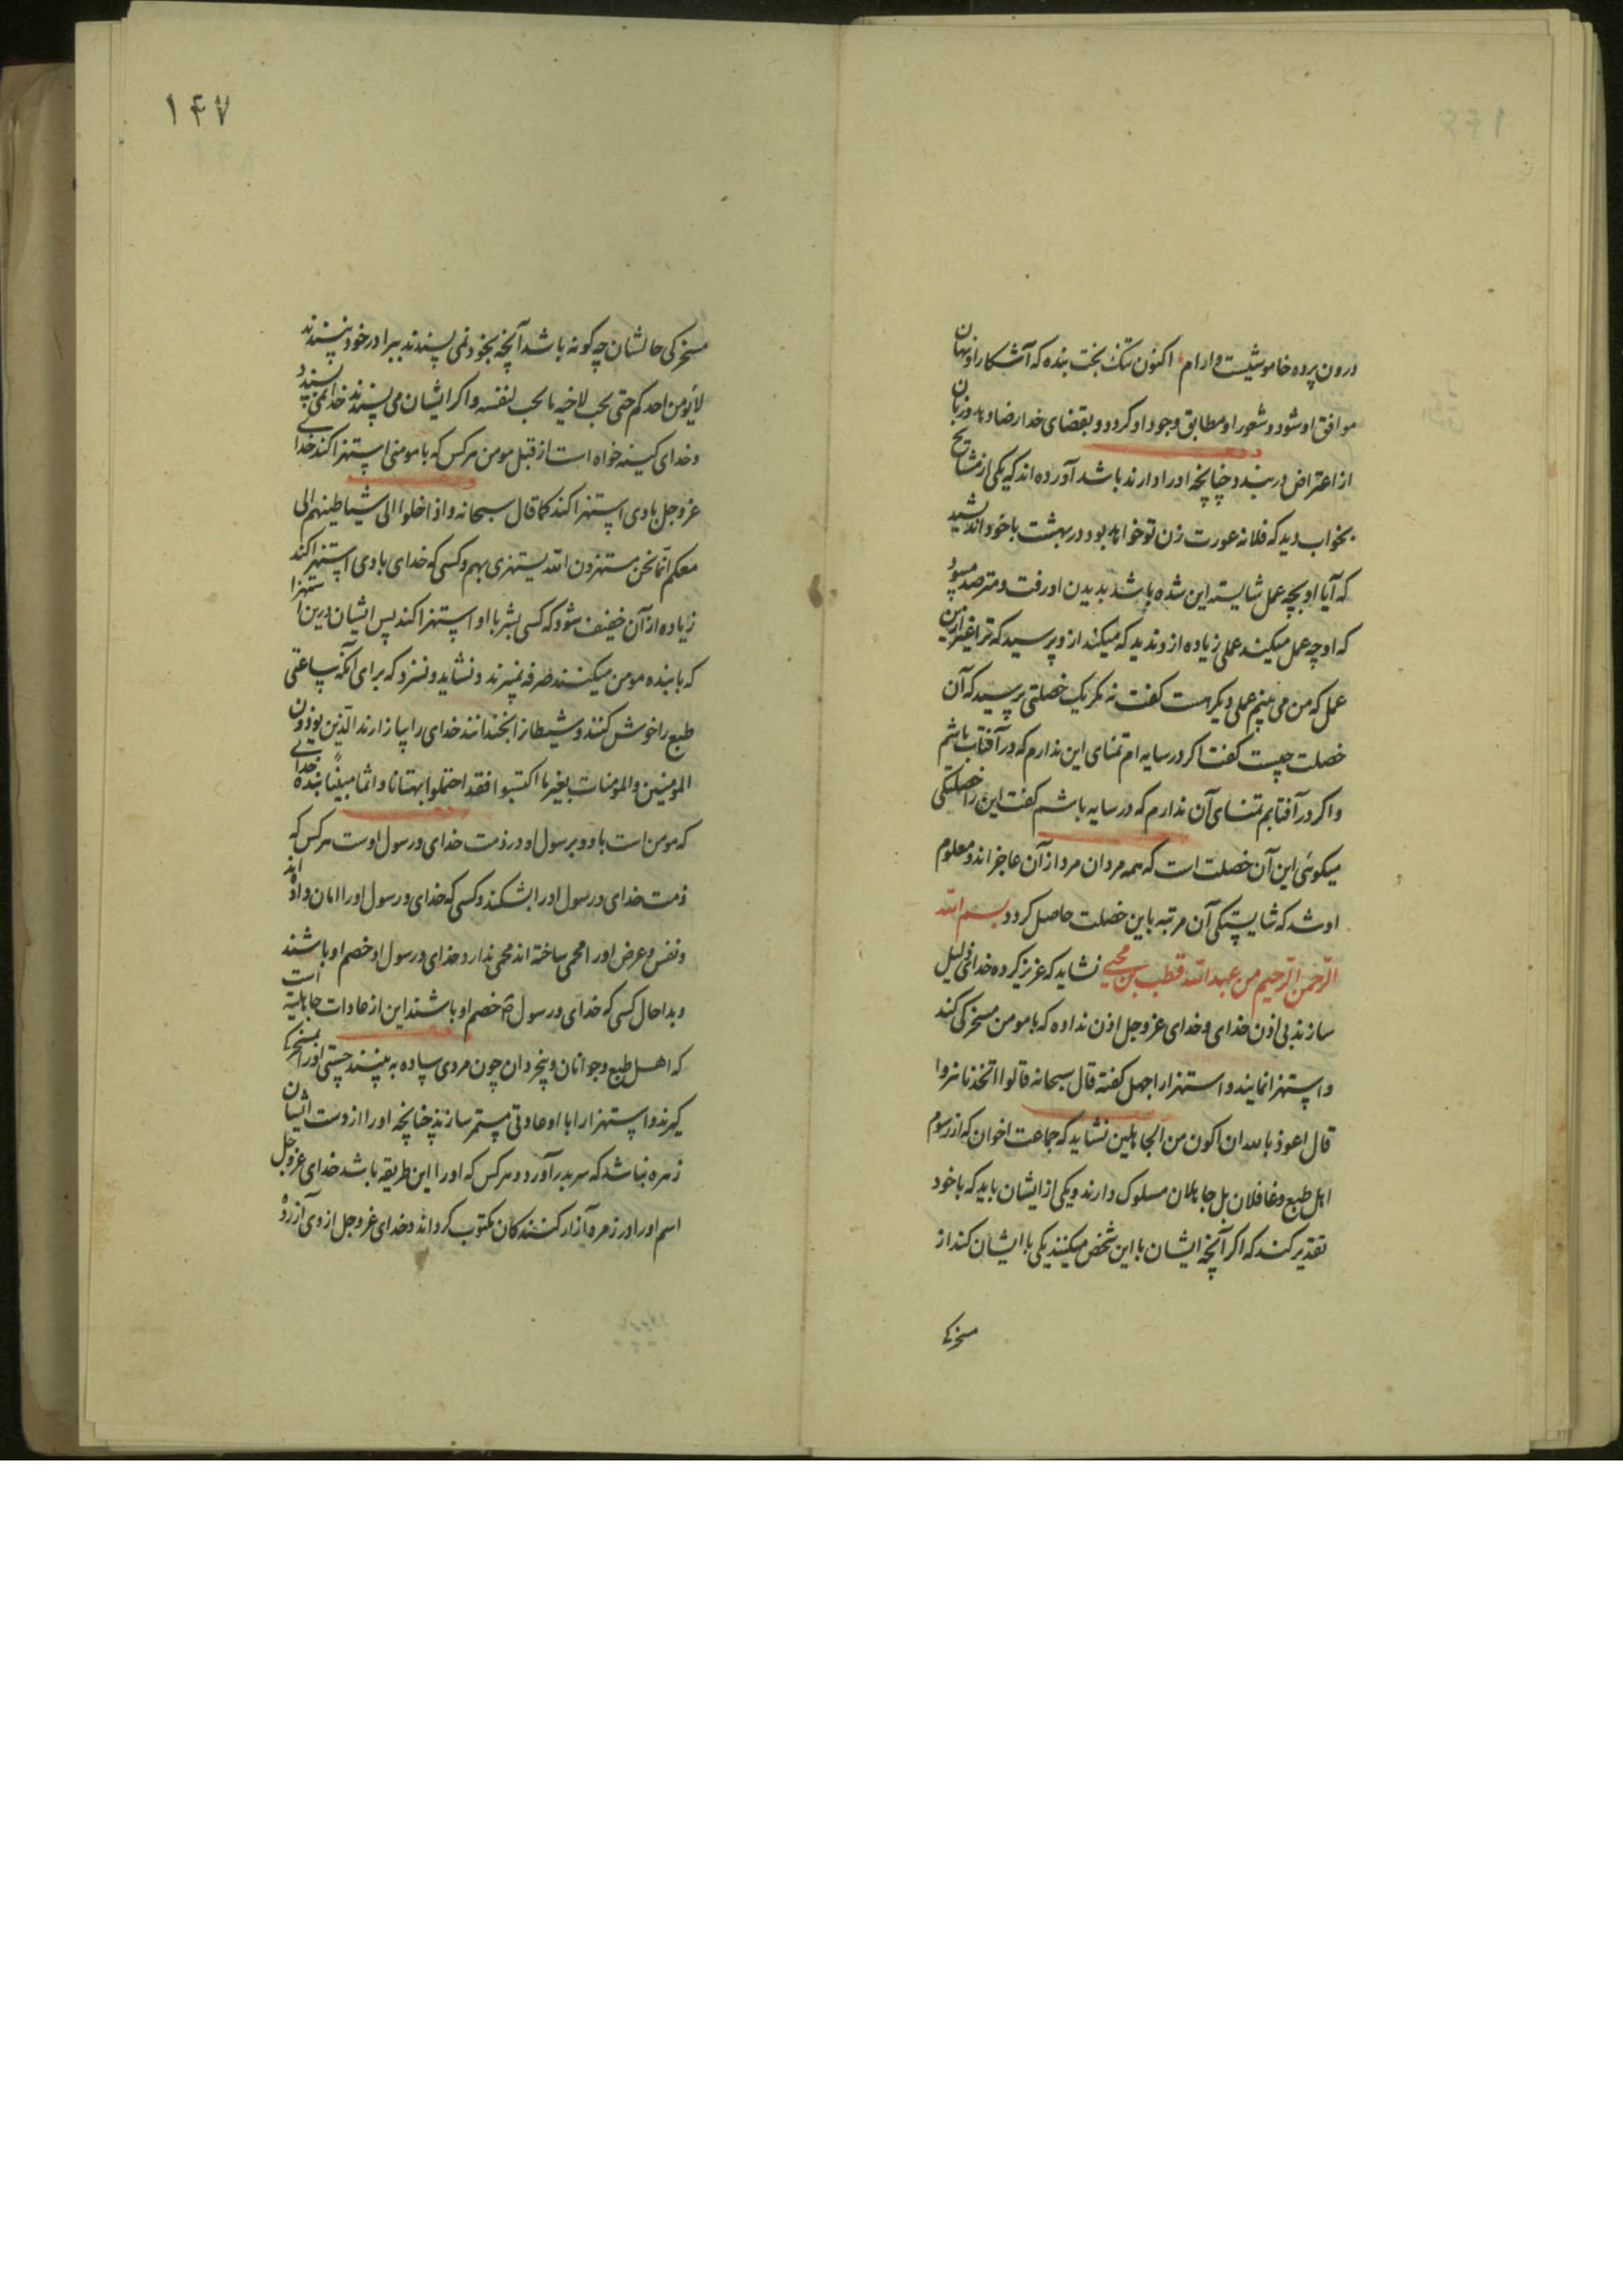 درون پرده خاموشیست و ارام اکنون نیک بخت بنده که آشکارا و نهان
موافق او شود و شعور او مطابق وجود او کردد و بقضای خدا رضا دهد و زبان
از اعتراض در بندد چنانچه اورا دارند باشد آورده اند که یکی از مشایخ
بخواب دید که فلانه عورت زن تو خواهد بود در بهشت با خود اندیشید
که آیا او بچه عمل شایسته این شده باشد بدیدن او رفت و مترصد میبود
که او چه عمل میکند عملی زیاده ازو ندید که میکند ازو پرسید که ترا غیر ازین
عمل که من می بینم عملی دیکر هست کفت نه مکر یک خصلتی پرسید که آن
خصلت چیست کفت اکر در سایه ام تمنای این ندارم که در آفتاب باشم
و اکر در آفتابم تمنای آن ندارم که در سایه باشم کفت این را خصلتکی
میکوئی این آن خصلت است که همه مردان مرد از آن عاجز اند و معلوم
او شد که شایستکی آن مرتبه باین خصلت حاصل کردد بسم الله
الرحمن الرحیم من عبد الله قطب بن محیی نشاید که عزیز کرده خدا ذلیل
سازند بی اذن خدای و خدای عز و جل اذن نداده که با مومن مسخرکی کند
و استهزا نمایند و استهزا را جهل کفته قال سبحانه قالوا اتتخذنا هزوا
قال اعوذ بالله ان اکون من الجاهلین نشاید که جماعت اخوان که از رسوم
اهل طبع و غافلان بل جاهلان مسلوک دارند و یکی از ایشان باید که با خود
تقدیر کند که اکر آنچه ایشان با این شخص میکنند یکی با ایشان کند از
مسخرکی
۱۴۷
مسخرکی حالشان چه کونه باشد آنچه بخود نمی پسندند ببرادر خود نپسندند
لایؤمن احدکم حتی یحب لاخیه ما یحب لنفسه و اکر ایشان می پسندند خدا نمی پسندد
و خدای کینه خواه است از قبل مومن هر کس که با مومنی استهزا کند خدای
عز و جل با وی استهزا کند کما قال سبحانه و اذا خلوا الی شیاطینهم الی
معکم انما نحن مستهزون الله یستهزی بهم و کسی که خدای با وی استهزا کند
زیاده از آن خفیف شود که کسی بشر با او استهزا کند پس ایشان درین استهزا
که با بنده مومن میکنند صرفه نمیبرند و نشاید و نسزد که برای آنکه ساعتی
طبع را خوش کنند و شیطان را بخندانند خدای را بیازارند الذین یوذون
المومنین والمومنات بغیر ما اکتسبوا فقد احتملوا بهتانا و اثما مبینا بنده خدای
که مومن است باو و برسول او در ذمت خدای و رسول اوست هر کس که
ذمت خدای و رسول اورا بشکند و کسی که خدای و رسول اورا امان داده اند
و نفس و عرض اورا محمی ساخته اند محمی ندارد خدای و رسول او خصم او باشند
و بدا حال کسی که خدای و رسول خصم او باشند این از عادات جاهلیه است
که اهل طبع و جوانان و بیخردان چون مردی ساده به بینند چستی اورا بمسخرکی
کیرند و استهزا را با او عادتی مستمر سازند چنانچه اورا از دست ایشان
زهره نباشد که سر بدر آورد و هر کس که اورا این طریقه باشد خدای عز و جل
اسم اورا در زمره آزار کنندکان مکتوب کرداند و خدای عز و جل از وی آزرده